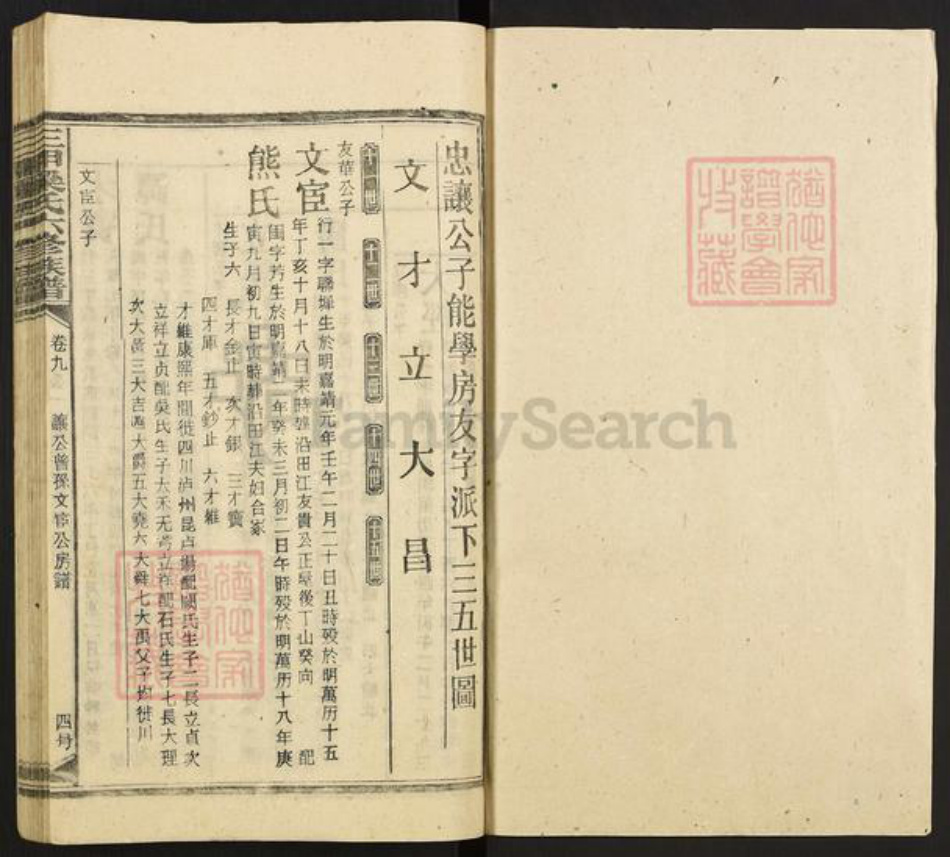 忠讓公子能學房友字派下三五世圖
文 才 立 大 昌
十二世 十三世 十四世 十五世
友華公子
文宦 行一字聯墀生於明嘉靖元年壬午二月二十日丑時殁於明萬历十五
年丁亥十月十八日未時葬沿田江友貴公正屋後丁山癸向 配
熊氏 闺字芳生於明嘉靖二年癸未三月初二日午時殁於明萬历十八年庚
寅九月初九日寅時葬沿田江夫妇合冢
生子六 長才金止 次才銀 三才寳
四才庫 五才鈔止 六才維
才維康熙年間徙四川泸州昆卢場配闕氏生子二長立貞次
立祥立贞配吳氏生子大禾无考立祥配石氏生子七長大理
次大黃三大吉四大爵五大堯六大舜七大禹父子均徙川
文宦公子
三甲梁氏六修族譜
卷九
讓公曾孫文宦公房譜
四
猶他家譜學會收藏
猶他家譜學會收藏
FamilySearch